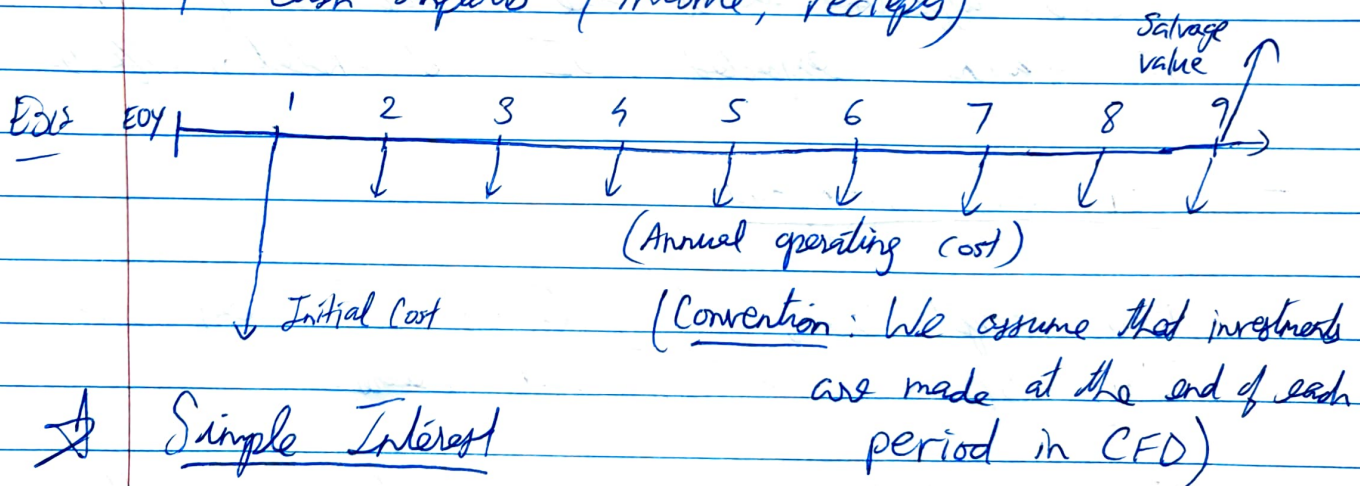 Cash (income,
Salvage
value
EOY 1 2 3 4 5 6 7 8 9
(Annual operating cost)
Initial Cost
(Convention: We assume that investments
are made at the end of each
period in CFD)
Simple Interest